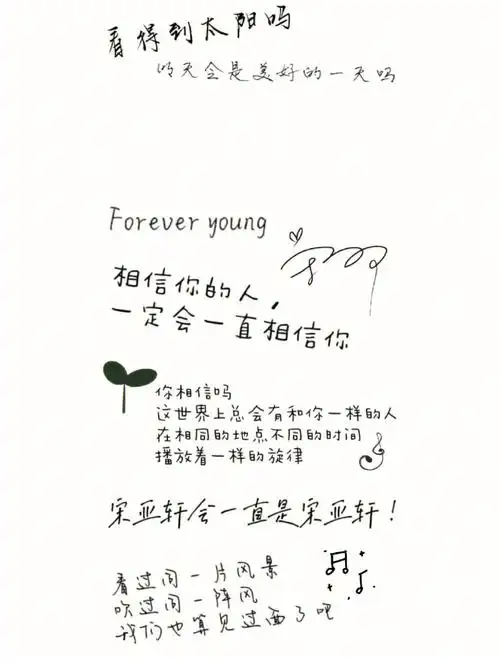 看得到太阳吗
明天会是美好的一天吗
Forever young
相信你的人，
一定会一直相信你
你相信吗
这世界上总会有和你一样的人
在相同的地点不同的时间
播放着一样的旋律
宋亚轩会一直是宋亚轩！
看过同一片风景
吹过同一阵风
我们也算见过面了吧